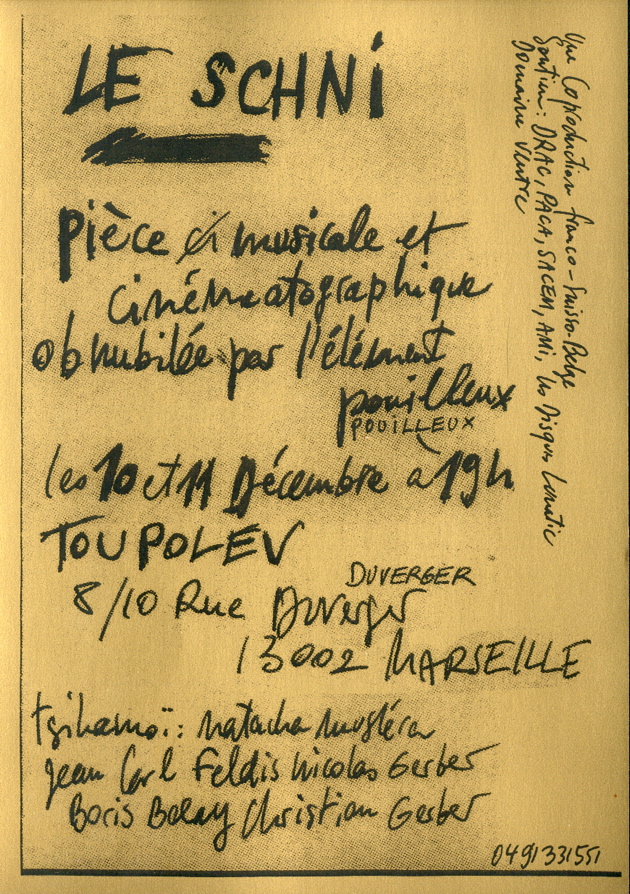 LE SCHNI
pièce musicale et
cinématographique
obnubilée par l'élément
pouilleux
POUILLEUX
les 10 et 11 Décembre à 19h
TOUPOLEV
DUVERGER
8/10 Rue Duverger
13002 MARSEILLE
tsihamoï : natacha muslera
Jean Carl Feldis Nicolas Gerber
Boris Balay Christian Gerber
0491331551
Une Coproduction franco-suisso-Belge
Soutien : DRAC, PACA, SACEM, AMi, les Disques Lunatic
Domaine Ventre